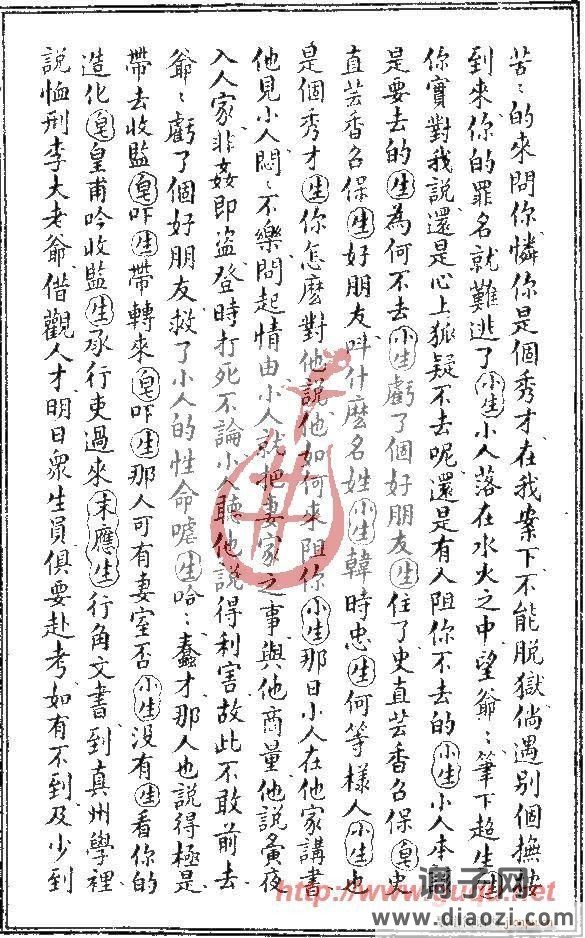 苦〻的來問你憐你是個秀才在我案下不能脫獄倘遇別個撫按
到來你的罪名就難逃了小生小人落在水火之中望爺〻筆下超生生
你實對我說還是心上狐疑不去呢還是有人阻你不去的小生小人本
是要去的生為何不去小生虧了個好朋友生住了史直芸香名保皂史
直芸香名保生好朋友呌什麽名姓小生韓時忠生何等樣人小生也
是個秀才生你怎麽對他說他如何來阻你小生那日小人在他家講書
他見小人悶〻不樂問起情由小人就把妻家之事與他商量他說黃夜
入人家非姦即盜登時打死不論小人聽他說得利害故此不敢前去
爺〻虧了個好朋友救了小人的性命嘘生哈〻蠢才那人也說得極是
帶去收監皂吓生帶轉來皂吓生那人可有妻室否小生没有生看你的
造化皂皇甫吟收監生承行吏過來末應生行角文書到真州學裡
說恤刑李大老爺借觀人才明日衆生員俱要赴考如有不到及少到
http://www.guqu.net
调子网
www.diaozi.com